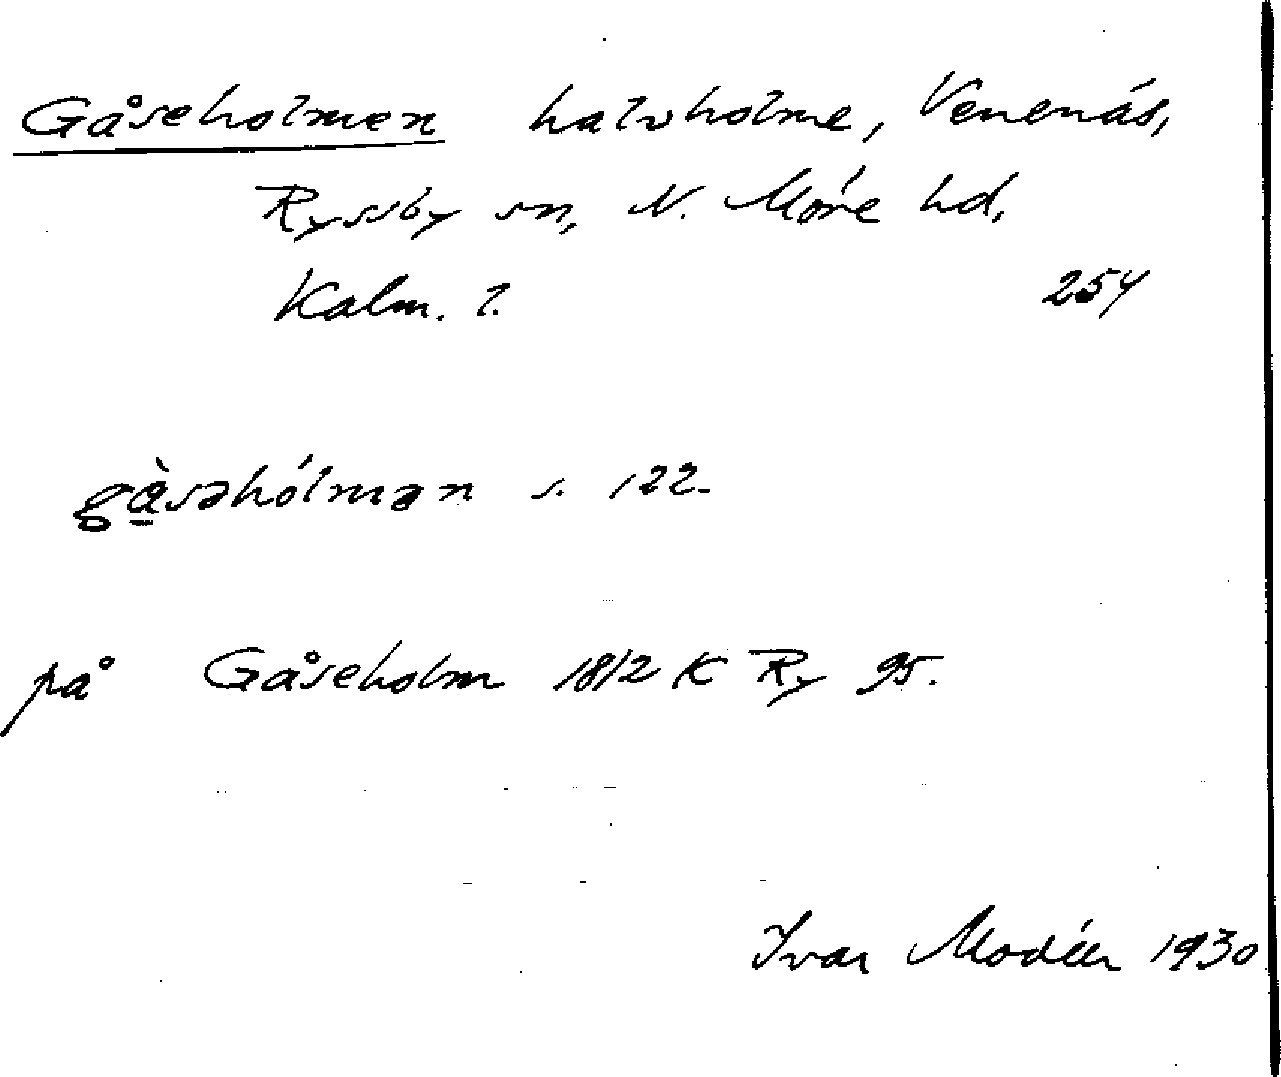 Gåseholmen halvholme, Venenäs,
Ryssby sn, N. Möre hd,
Kalm. l. 254
gå̀səhólmən s. 122.
på Gåseholm 1812 K Ry 95.
Ivar Modéer 1930